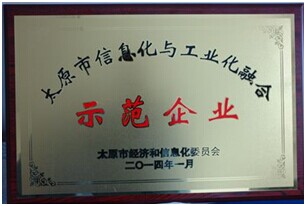 太原市信息化与工业化融合
示范企业
太原市经济和信息化委员会
二〇一四年一月